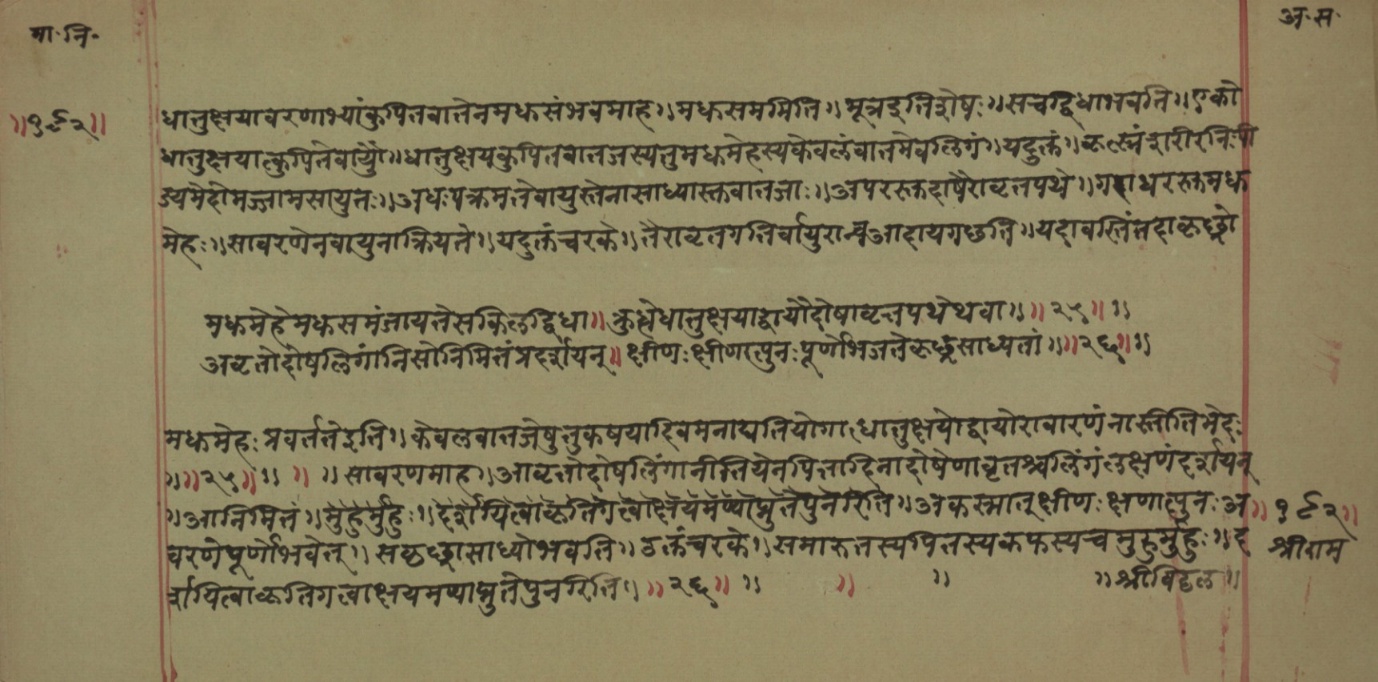 मा·नि·
अ·स·
॥१९२॥
धातुक्षयावरणाभ्यांकुपितवातेनमधसंभवमाह॥मधसममिति॥मूत्रइतिशेषः॥सचद्विधाभवति॥एको
धातुक्षयात्कुपितेवायौ॥धातुक्षयकुपितवातजस्यतुमधमेहस्यकेवलंवातमेवलिगं॥यदुक्तं॥कृत्स्नंशरीरनिःपी
ड्यमेहोमज्जामसायुतः॥अधःपक्रमतेवायुस्तेनासाध्यास्तवातजाः॥अपरस्तदोषैरावृतपथे॥गदाधरस्तमध
मेहः॥सावरणेनवायुनाक्रियते॥यदुक्तंचरके॥तैरावृतगतिर्वायुरान्त्रआदायगछति॥यदाबस्तिंतदाकृछ्रो
मधमेहेमधसमंजायतेसकिलद्विधा॥क्रुद्धेधातुक्षयाद्वायौदोषावृतपथेथवा॥॥२५॥॥
अवृतोदोषलिगांनिसोनिमितंप्रदर्शयन्॥क्षीणःक्षीणात्पुनःपूर्णोभिजतेकृछ्रसाध्यतां॥॥२६॥॥
मधमेहःप्रवर्ततेइति॥केवलवातजेषुतुकषयादिवमनाद्यतियोगात्धातुक्षयोद्वायोरावारणंनास्तीतिभेदः
॥॥२५॥॥ ॥ ॥सावरणमाह॥आवृतोदोषलिंगानीतियेनपित्तादिनादोषेणावृतश्चलिंगंलक्षणंदर्शयन्
॥आनिमितं॥मुहुर्मुहुः॥दर्शयित्वाकृतिगत्वाक्षयमप्याप्नुतेपुनरिति॥अकस्मात्क्षीणःक्षणात्पुनःअ
॥१९२॥
वरणेपूर्णोभवेत्॥सकृछ्रासाध्योभवति॥उक्तंचरके॥समारुतस्यपित्तस्यकफस्यचमुहुर्मुहुः॥द
श्रीराम
र्शयित्वाकृतिगत्वाक्षयमप्याप्नुतेपुनरिति॥॥२६॥॥ ॥ ॥ ॥श्रीविठ्ठल॥